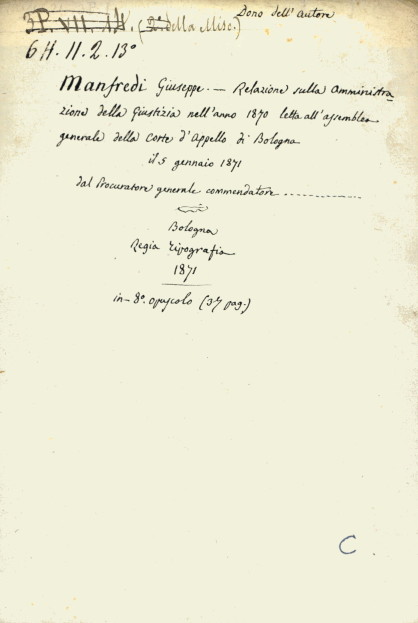 3P. VII. 14. (2ª della Misc.) Dono dell' autore
6H. 11. 2. 13°
Manfredi Giuseppe. — Relazione sulla amministra
zione della Giustizia nell'anno 1870 letta all'assemblea
generale della Corte d'Appello di Bologna
il 5 gennaio 1871
dal Procuratore generale commendatore ..............
Bologna
Regia Tipografia
1871
in-8°. opuscolo (37 pag.)
C